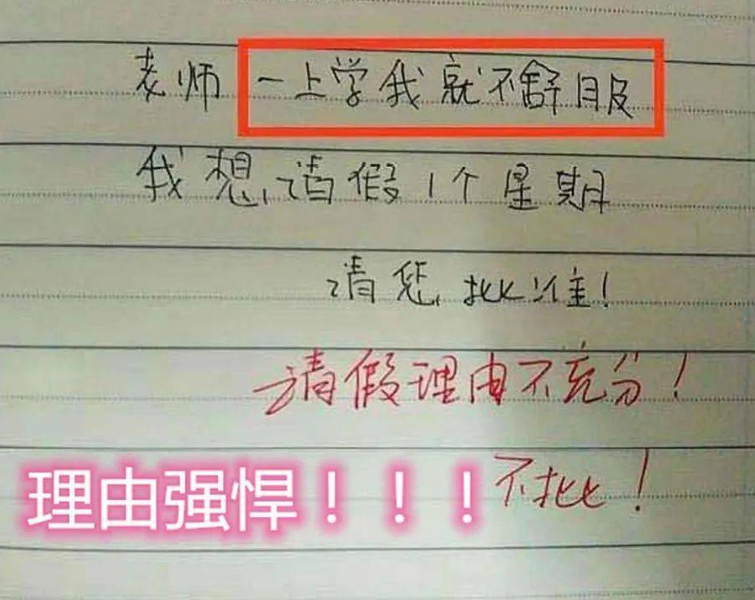 老师 一上学我就不舒服
我想请假1个星期
请您批准!
请假理由不充分!
理由强悍！！！
不批!